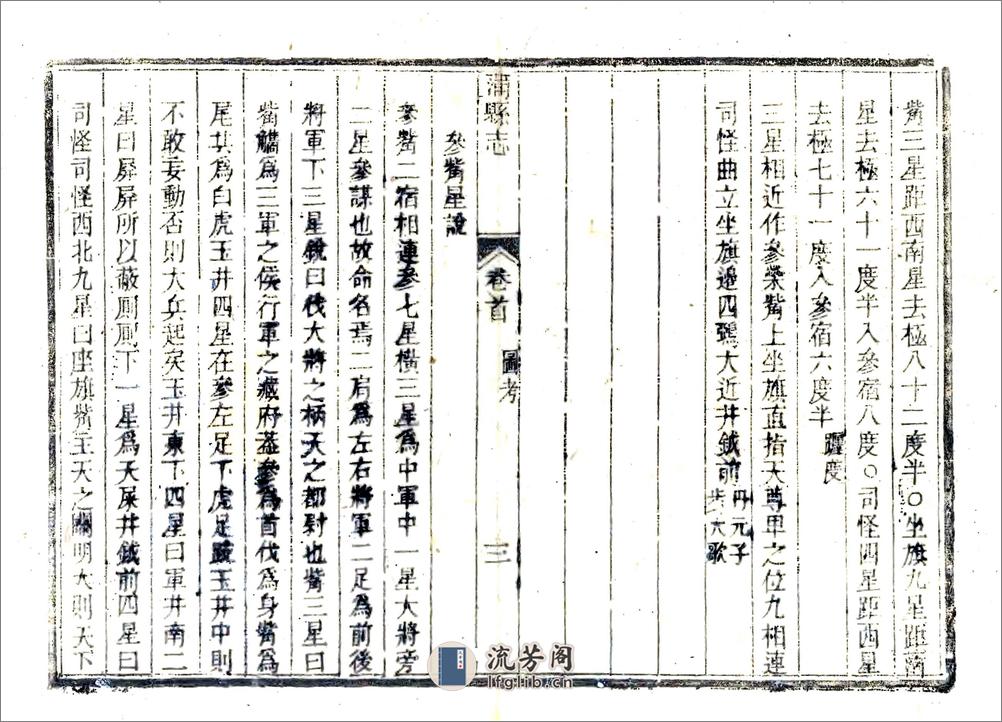 觜三星距西南星去極八十二度半○坐旗九星距南
星去極六十一度半入參宿八度○司怪四星距西星
去極七十一度入參宿六度半 躔度
三星相近作參蘂觜上坐旗直指天尊卑之位九相連
司怪曲立坐旗邊四鴉大近井鉞前 丹元子
步天歌
蒲縣志
卷首
圖考
三
參觜星說
參觜二宿相連參七星橫三星為中軍中一星大將旁
二星參謀也故命名焉二肩為左右將軍二足為前後
將軍下三星銳曰伐大將之柄天之都尉也觜三星曰
觜觿為三軍之侯行軍之藏府葢參為首伐為身觜為
尾共為白虎玉井四星在參左足下虎足踐玉井中則
不敢妄動否則大兵起矣玉井東下四星曰軍井南二
星曰屏屏所以蔽厠厠下一星為天屎井鉞前四星曰
司怪司怪西北九星曰座旗觜主天之關明大則天下
流芳阁
lfglib.cn